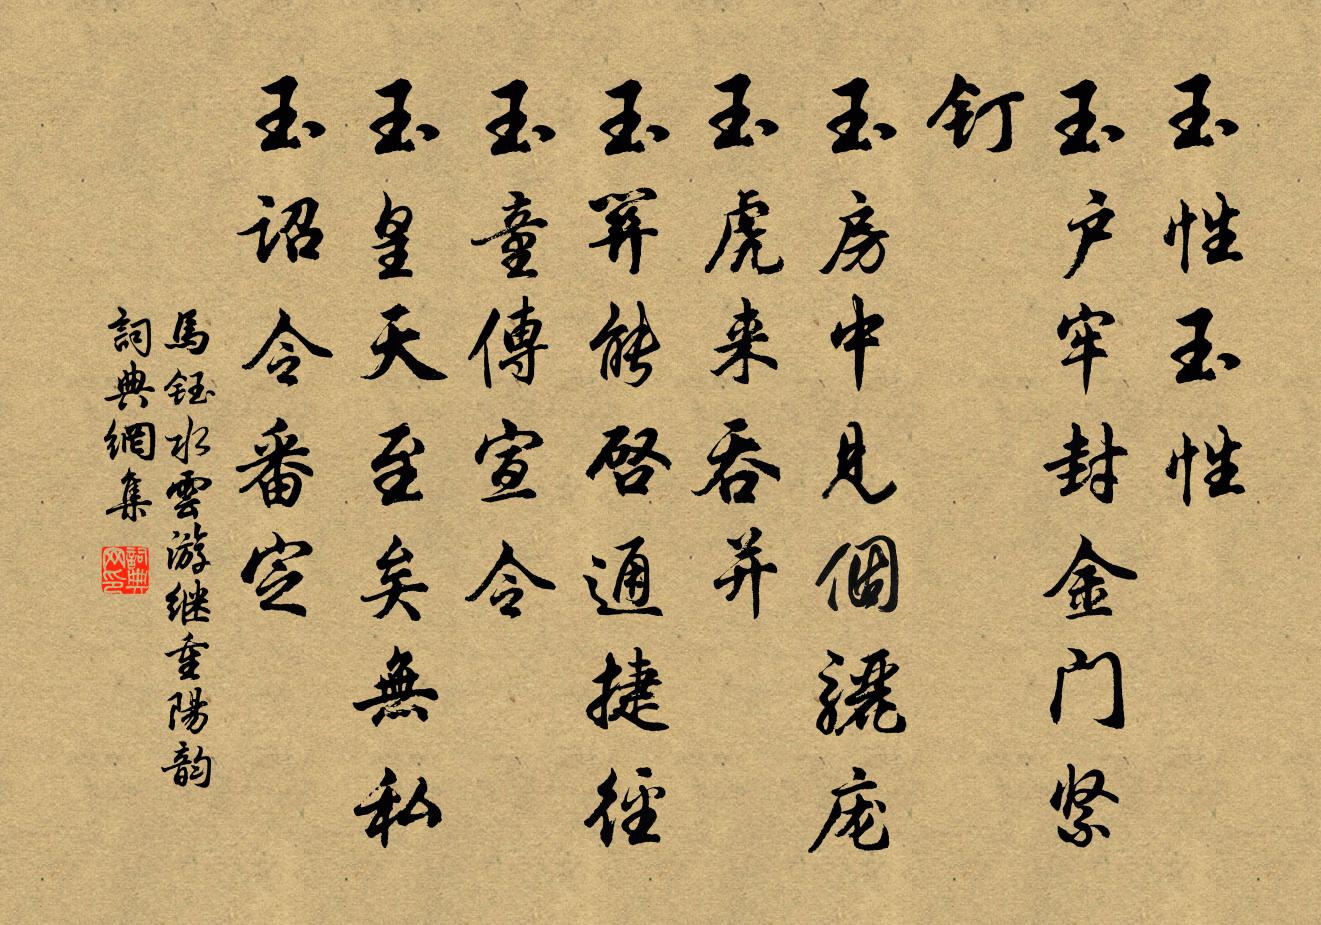 玉性玉性
玉户牢封金门紧
釘
玉房中見個驪庞
玉虎来吞并
玉笄能啓通捷徑
玉童傳宣令
玉皇天至矣無私
玉詔令番定
馬鈺水雲游继重陽韵
詞典網集
詞典网印